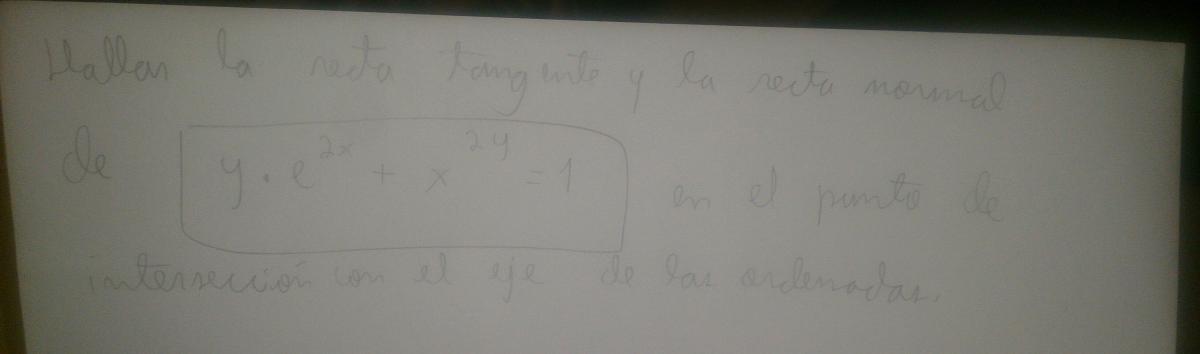 Hallar la recta tangente y la recta normal
de y · e^{2x} + x^{2y} = 1 en el punto de
intersección con el eje de las ordenadas.